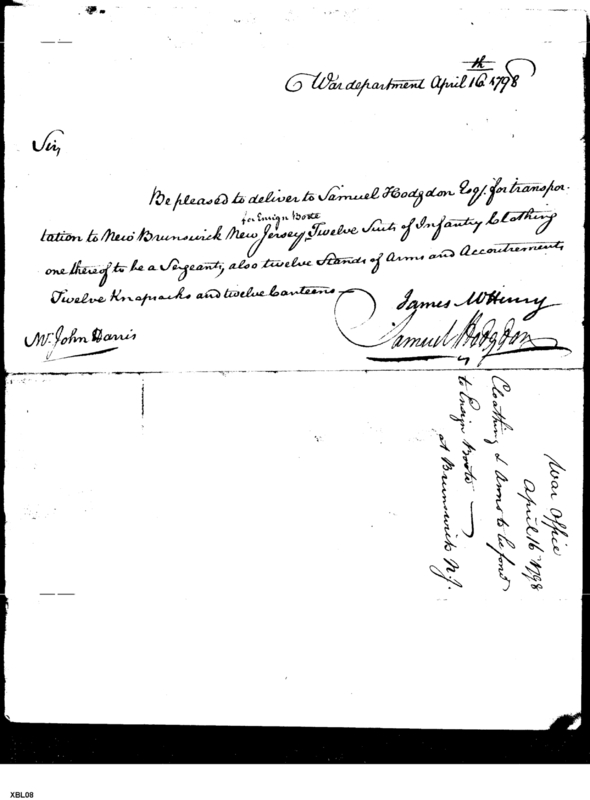 War department April 16th 1798
Sir,
Be pleased to deliver to Samuel Hodgdon Esqr. for transpor-
for Ensign Boote
tation to New Brunswick New Jersey, Twelve Suits of Infantry Clothing
one thereof to be a Sergeants, also twelve Stands of Arms and Accoutrements
Twelve Knapsacks and twelve Canteens—
James McHenry
Samuel Hodgdon
Mr. John Harris
War Office
April 16 1798
Cloathing & Arms to be
to Ensign Boote —
at Brunswick N.J.
XBL08